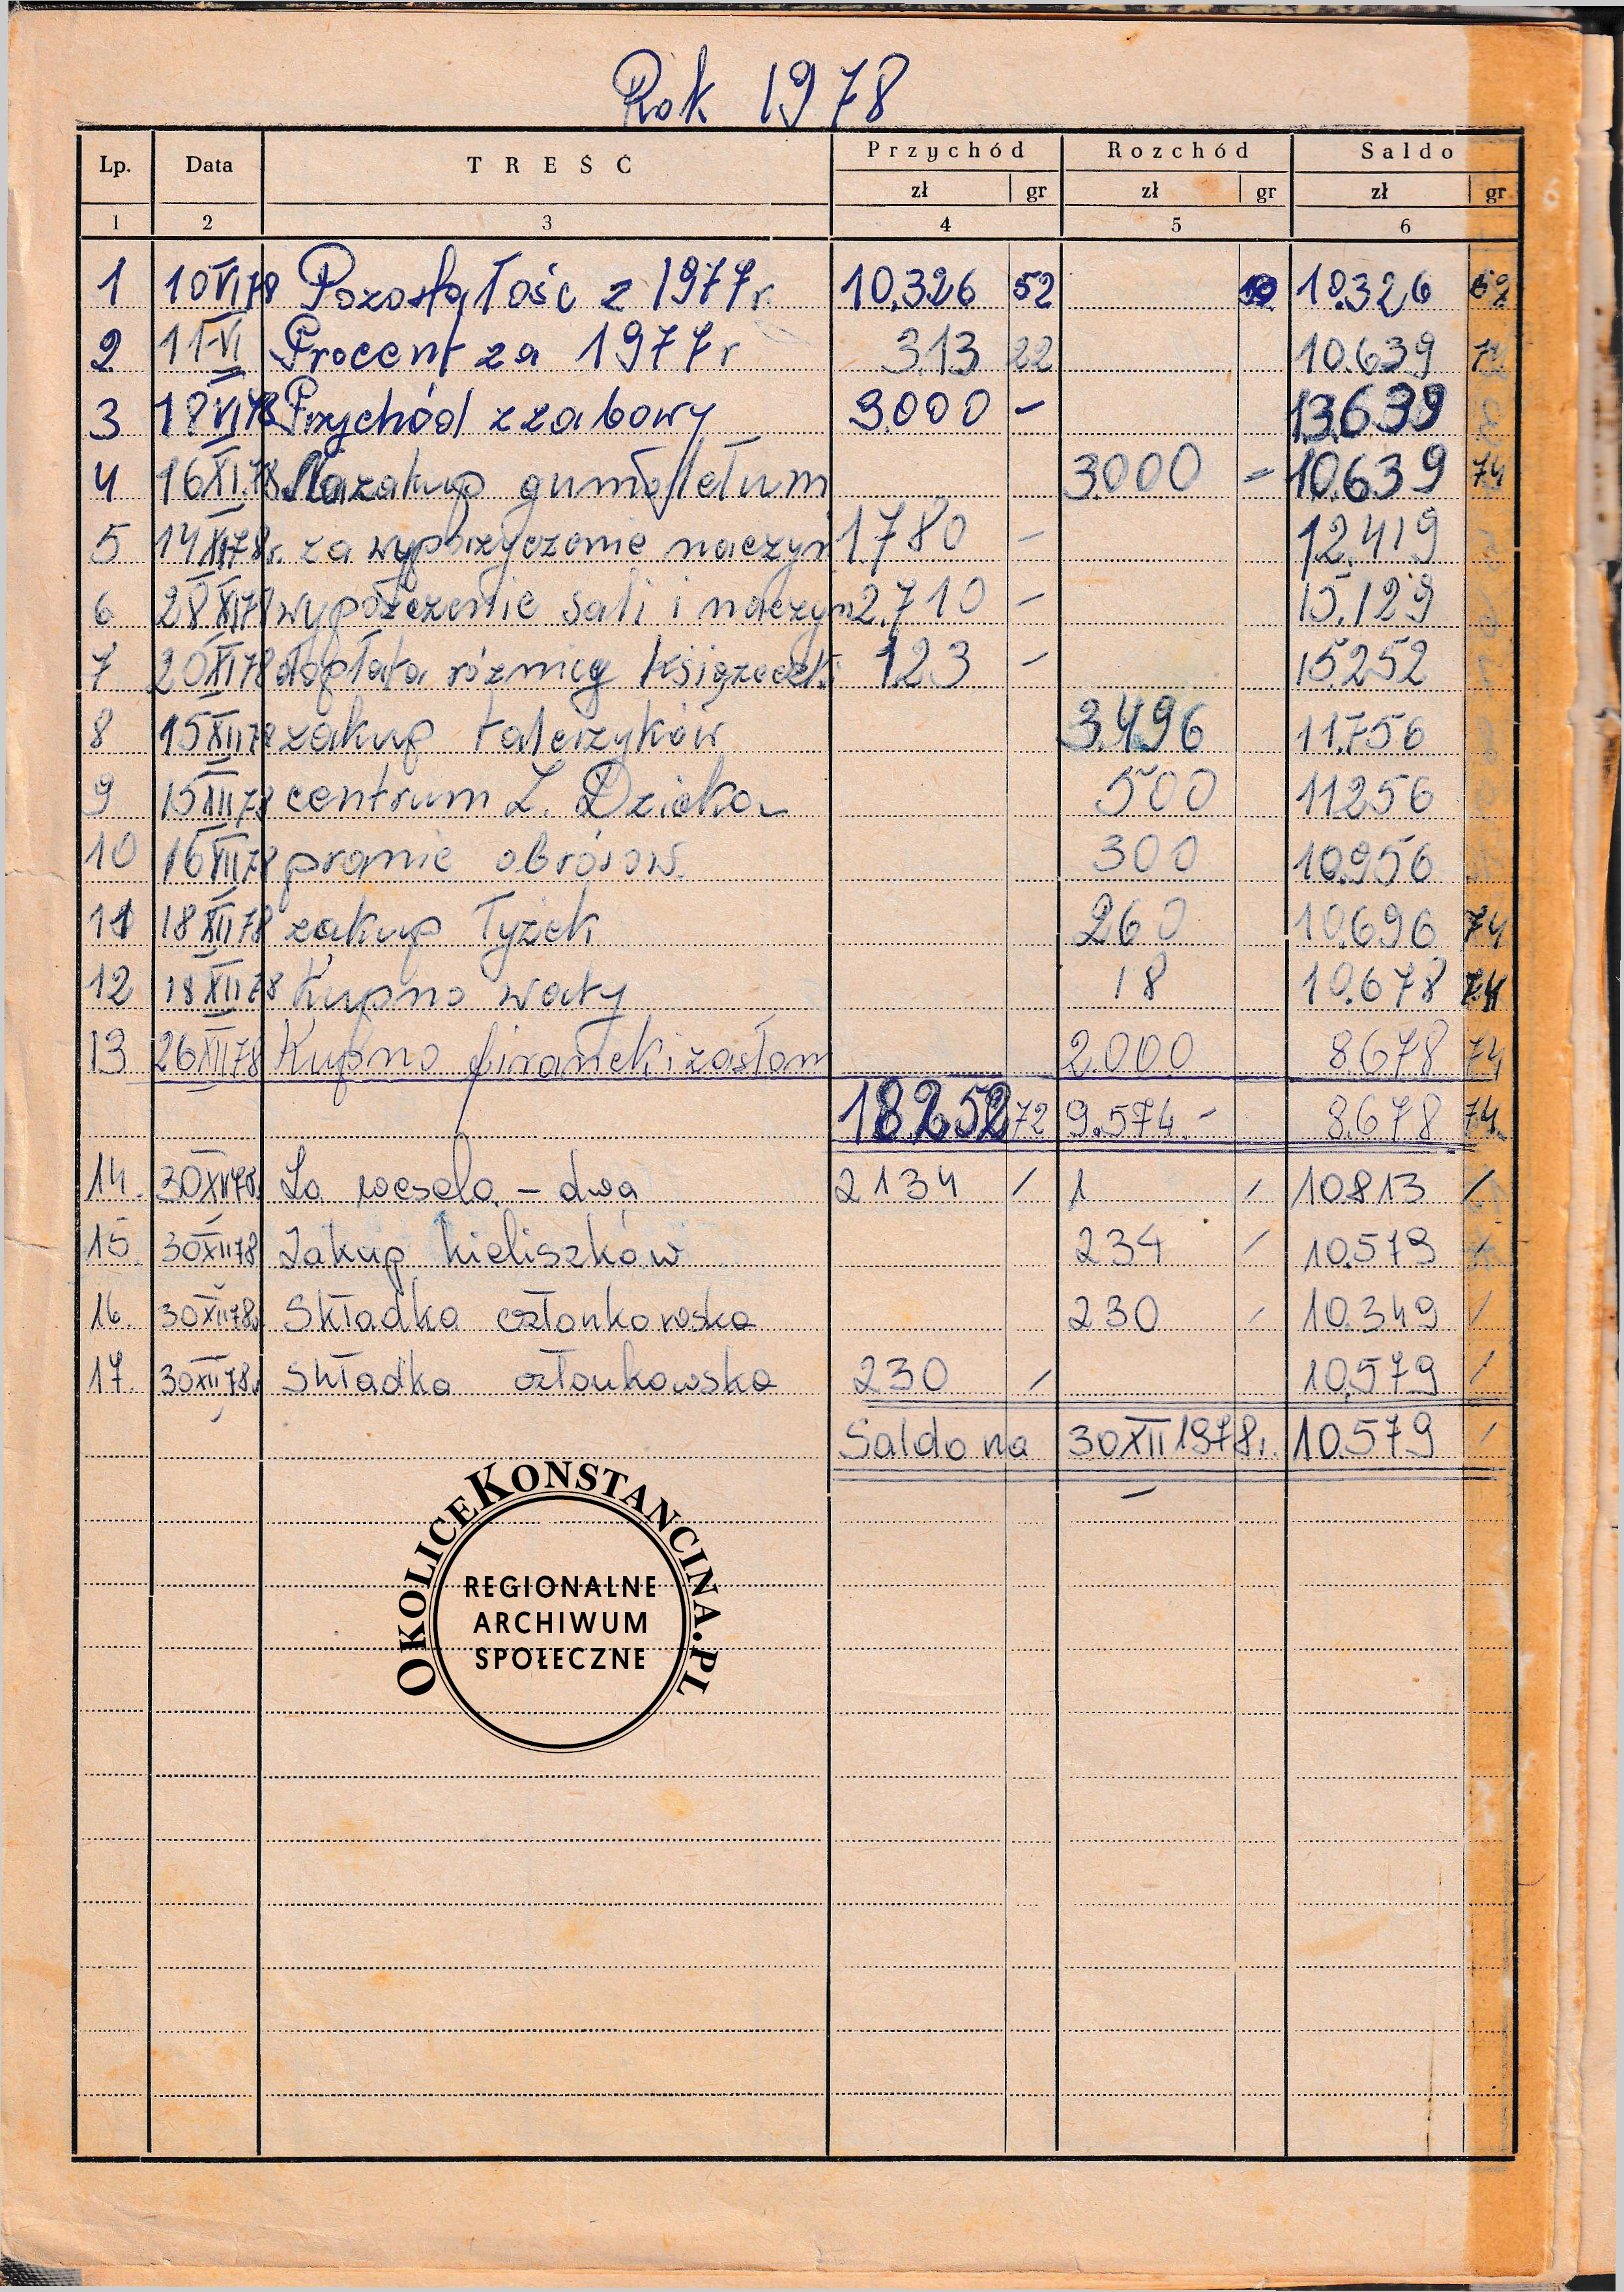 Rok 1978
Lp. Data TREŚĆ Przychód Rozchód Saldo
zł gr zł gr zł gr
1 2 3 4 5 6
1 10 VI 78 Pozostałość z 1977r. 10.326 52 10.326 52
2 11 VI Procent za 1977r 313 22 10.639 74
3 18 VI 78 Przychód z zabowy 3.000 - 13.639
4 16 XI 78 Na zakup gumoletum 3.000 - 10.639 74
5 14 XI 78r. za wyporzyczenie naczyń 1780 - 12.419
6 28 XI 78 wypożczenie sali i naczyn 2.710 - 15.129
7 20 XI 78 dopłata różnicy książeczki 123 - 15.252
8 15 XII 78 zakup talerzyków 3.496 11.756
9 15 XII 78 centrum Z. Dziecka 500 11256
10 16 XII 78 pranie obrósow. 300 10.956
11 18 XII 78 zakup łyżek 260 10.696 74
12 18 XII 78 Kupno waty 18 10.678 74
13 26 XII 78 Kupno firanek i zasłon 2.000 8.678 74
18252 72 9.574 - 8.678 74
14. 30 XII 78. Za wesela - dwa 2134 / 1 / 10.813 /
15. 30 XII 78 Zakup kieliszków 234 / 10.579 /
16. 30 XII 78. Składka członkowska 230 / 10.349 /
17. 30 XII 78. Składka członkowska 230 / 10.579 /
Saldo na 30 XII 1978r. 10.579 /
OKOLICEKONSTANCINA.PL
REGIONALNE
ARCHIWUM
SPOŁECZNE